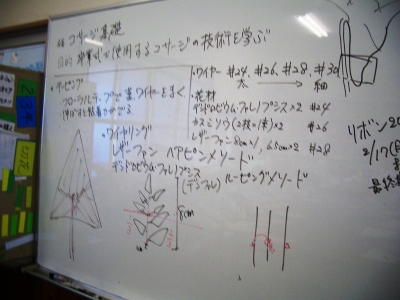 コサージ基礎
目的 卒業式で使用するコサージの技術を学ぶ
・テーピング
フローラルテープで茎、ワイヤーをまく
・ワイヤリング
レザーファン ヘアピンメソード
デンドロビウム・ファレノプシス
(デンファレ) ルーピングメソード
8cm
・ワイヤー #24, #26, #28, #30
太 → 細
・花材
デンドロビウム・ファレノプシス×2 #24
カスミソウ(2枝=1本)×2 #26
レザーファン 8cm×1, 6.5cm×2 #28
リボン20
2/17(
最終